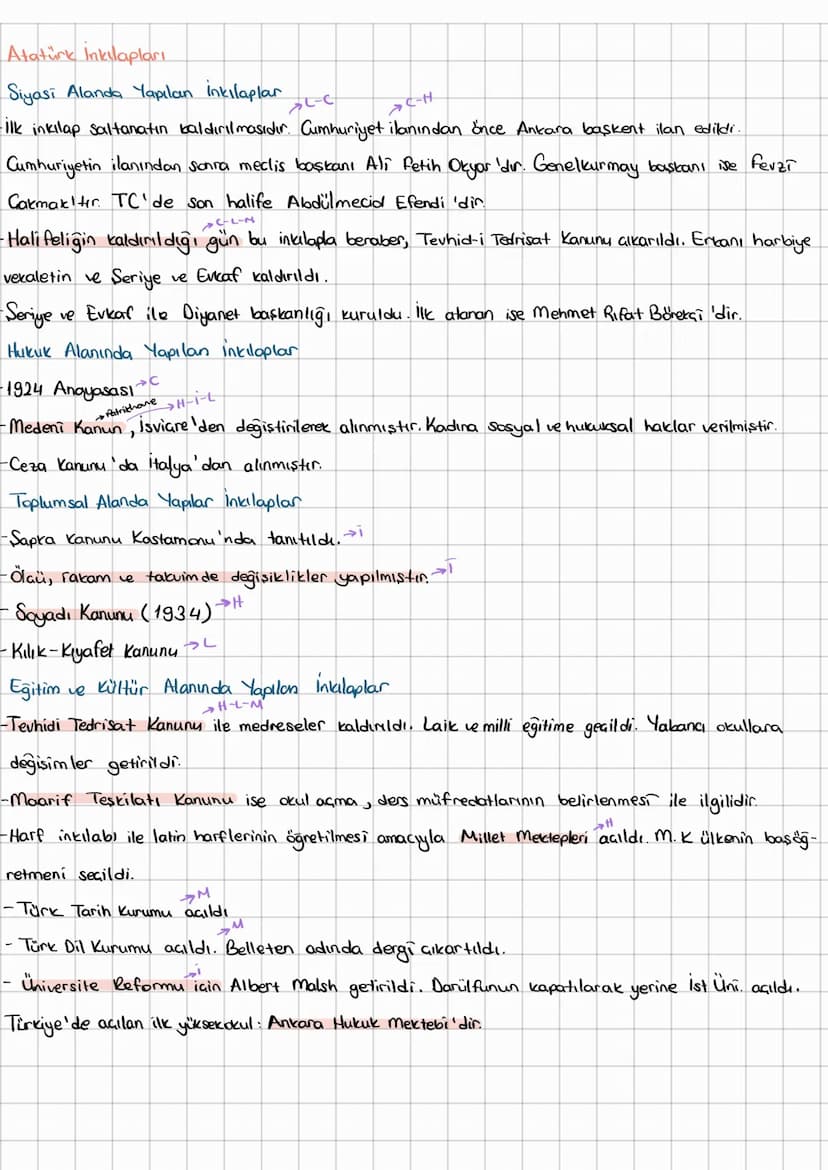 Atatürk İnkılapları
Siyasi Alanda Yapılan İnkılaplar
→L-C →C-H
-İlk inkılap saltanatın kaldırılmasıdır. Cumhuriyet ilanından önce Ankara başkent ilan edildi.
Cumhuriyetin ilanından sonra meclis başkanı Ali Fetih Okyar'dır. Genelkurmay başkanı ise Fevzi
Çakmak'tır. TC'de son halife Abdülmecid Efendi'dir.
→C-L-M
-Halifeliğin kaldırıldığı gün bu inkılapla beraber, Tevhid-i Tedrisat Kanunu çıkarıldı. Erkanı harbiye
vekaletin ve Şeriye ve Evkaf kaldırıldı.
-Seriye ve Evkaf ile Diyanet başkanlığı kuruldu. İlk atanan ise Mehmet Rıfat Börekçi'dir.
Hukuk Alanında Yapılan İnkılaplar
-1924 Anayasası →C
→Patrikhane →H-İ-L
-Medeni Kanun, İsviçre'den değiştirilerek alınmıştır. Kadına sosyal ve hukuksal haklar verilmiştir.
-Ceza Kanunu'da İtalya'dan alınmıştır.
Toplumsal Alanda Yapılar İnkılaplar
-Şapka Kanunu Kastamonu'nda tanıtıldı. →İ
-Ölçü, rakam ve takvimde değişiklikler yapılmıştır. →İ
- Soyadı Kanunu (1934) →H
-Kılık-Kıyafet Kanunu →L
Eğitim ve Kültür Alanında Yapılan İnkılaplar
→H-L-M
-Tevhidi Tedrisat Kanunu ile medreseler kaldırıldı. Laik ve milli eğitime geçildi. Yabancı okullara
değişimler getirildi.
-Maarif Teşkilatı Kanunu ise okul açma, ders müfredatlarının belirlenmesi ile ilgilidir.
→H
-Harf inkılabı ile latin harflerinin öğretilmesi amacıyla Millet Mektepleri açıldı. M.K ülkenin başöğ-
retmeni seçildi.
→M
- Türk Tarih Kurumu açıldı
→M
- Türk Dil Kurumu açıldı. Belleten adında dergi çıkartıldı.
→İ
- Üniversite Reformu için Albert Malsh getirildi. Darülfunun kapatılarak yerine İst Üni. açıldı.
Türkiye'de açılan ilk yüksekokul: Ankara Hukuk Mektebi'dir.